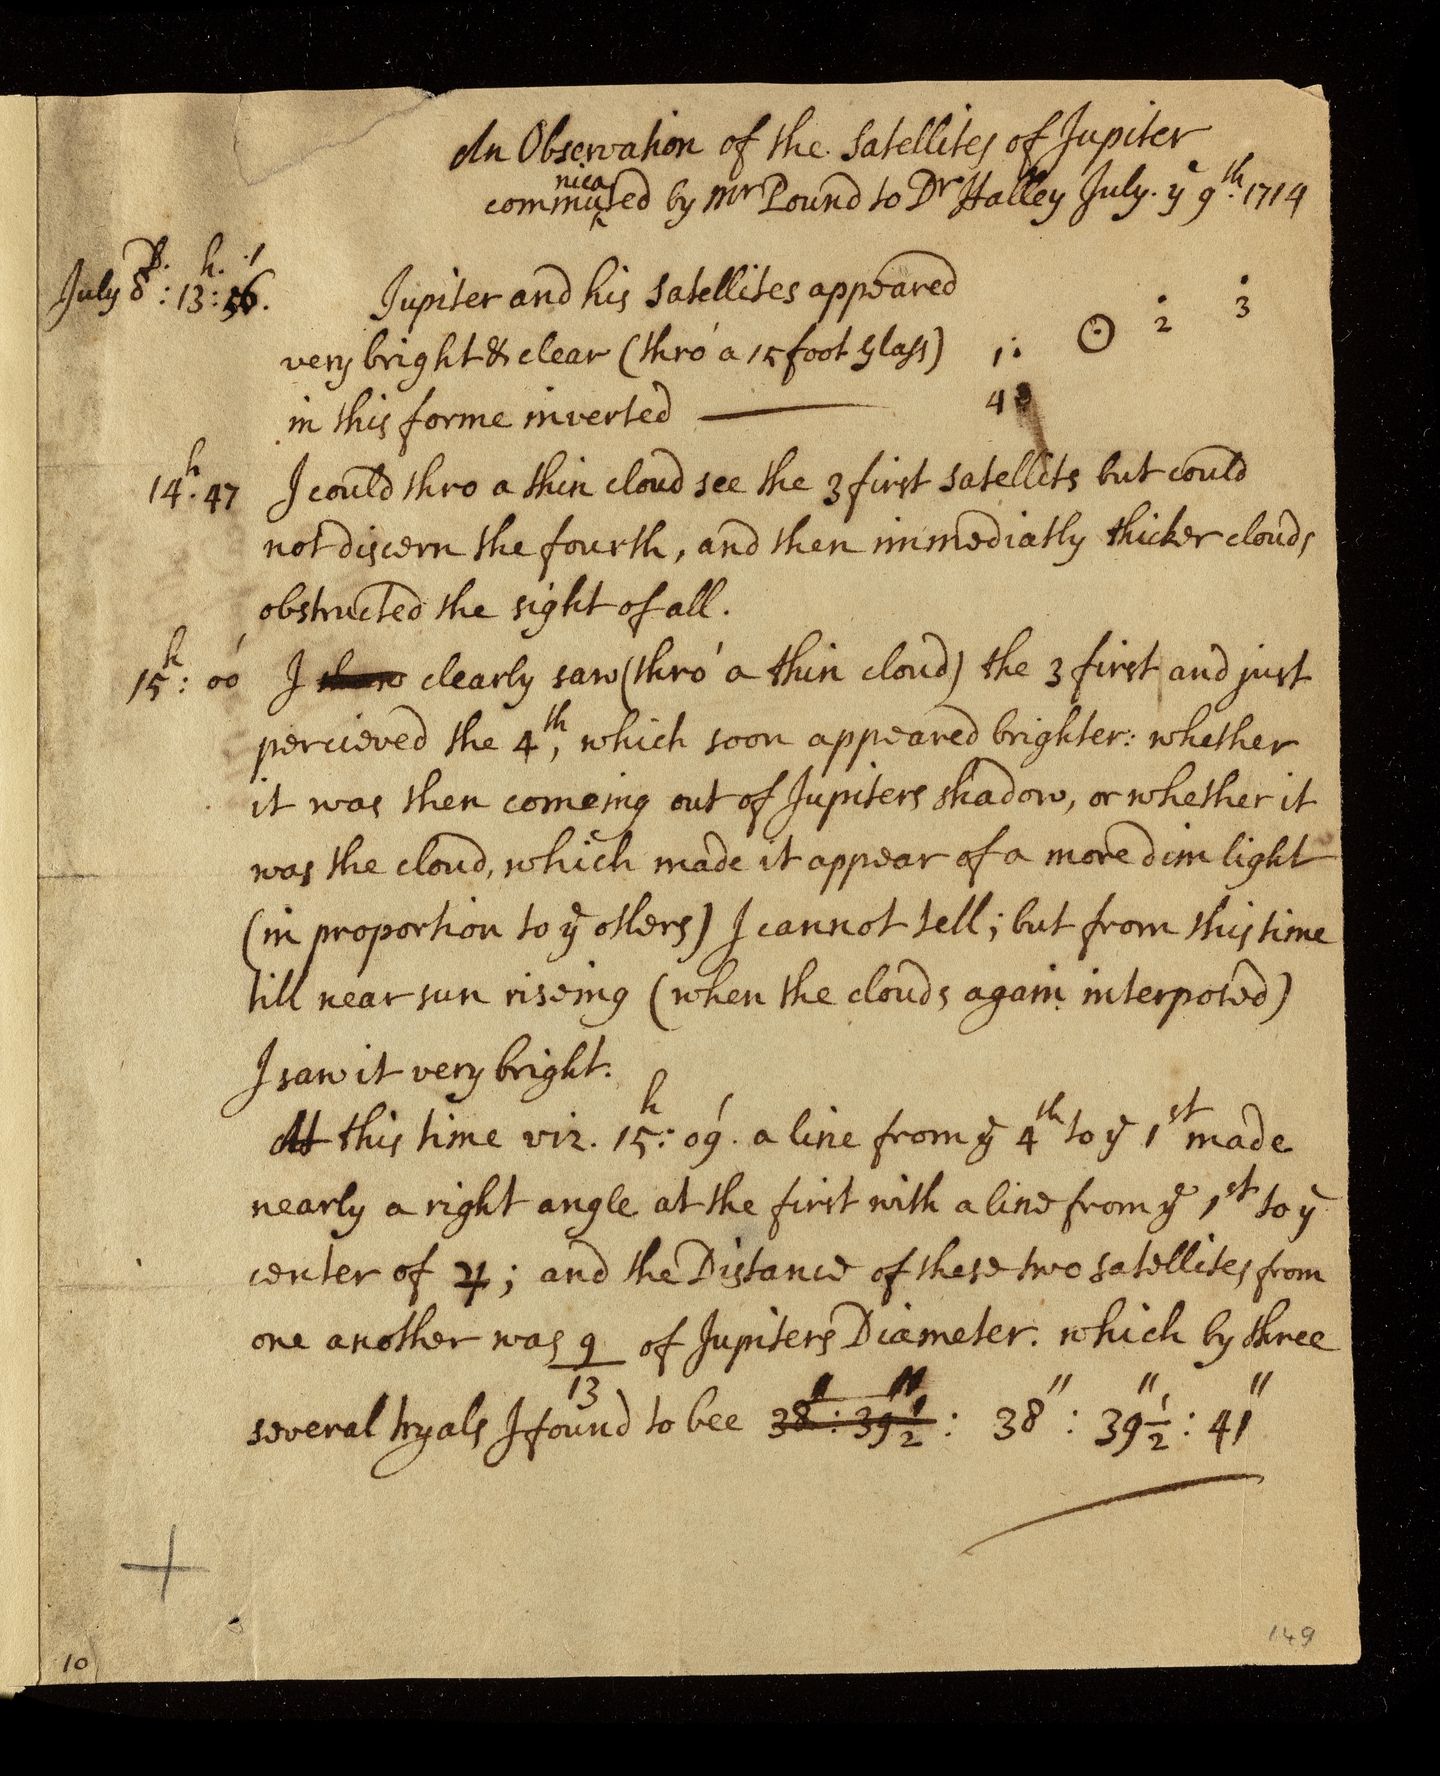 An Observation of the Satellites of Jupiter
nica
commuted by Mr Pound to Dr Halley July. ye 9th. 1714
D. h. '
July 8 : 13 : 56. Jupiter and his Satellites appeared
very bright & clear (thro' a 15 foot Glass)
1 ⊙ 2 3
in this forme inverted 4
14h. 47 I could thro a thin cloud see the 3 first Satellits but could
not discern the fourth, and then immediatly thicker clouds
obstructed the sight of all.
15h : 00' I clearly saw (thro' a thin cloud) the 3 first and just
percieved the 4th, which soon appeared brighter: whether
it was then comeing out of Jupiters shadow, or whether it
was the cloud, which made it appear of a more dim light
(in proportion to ye others) I cannot tell; but from this time
till near sun riseing (when the clouds again interposed)
I saw it very bright.
At this time viz. 15h : 09'. a line from ye 4th to ye 1st made
nearly a right angle at the first with a line from ye 1st to ye
center of ♃; and the Distance of these two Satellites from
one another was 9/13 of Jupiters Diameter. which by three
several tryals I found to bee 38'' : 39½'' : 38'' : 39½'' : 41''
10
149